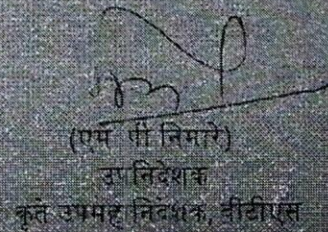 (एम पी निमारे)
उप निदेशक
कृते उपमहानिदेशक, वीटीएस